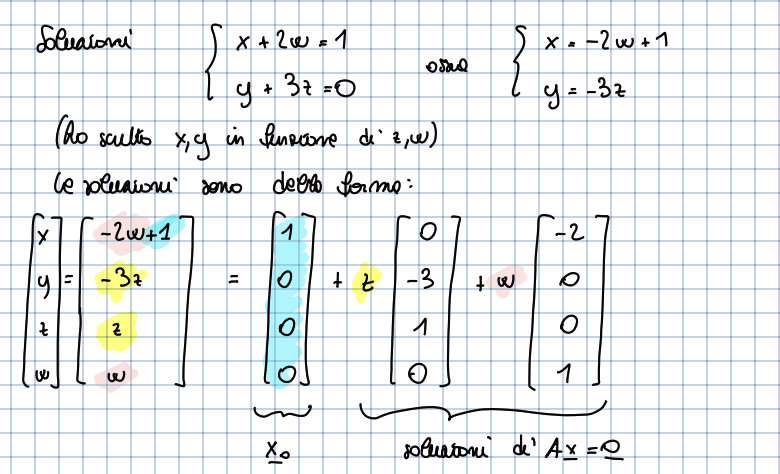 Soluzioni { x + 2w = 1 ossia { x = -2w + 1
y + 3z = 0 y = -3z
(ho scelto x, y in funzione di z, w)
le soluzioni sono della forma:
[x] = [-2w+1] = [1] + z [0] + w [-2]
[y] [-3z] [0] [-3] [0]
[z] [z] [0] [1] [0]
[w] [w] [0] [0] [1]
x₀ soluzioni di Ax = 0